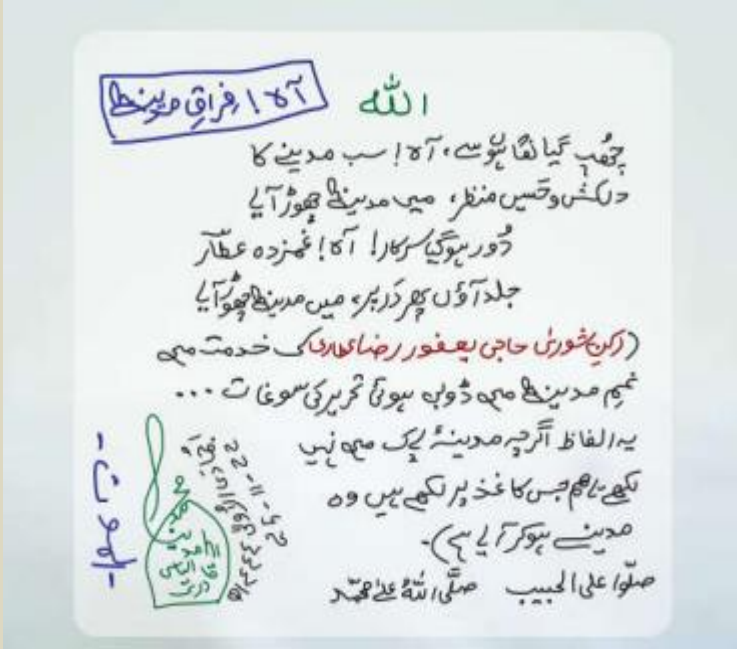 اللہ
آہ! فراقِ مدینہ
چُھپ گیا نگاہوں سے، آہ! سب مدینے کا
دلکش و حَسیں منظر، میں مدینہ چھوڑ آیا
دُور ہوگیا سرکار! آہ! غمزدہ عطّار
جلد آؤں پھر دَر پر، میں مدینہ چھوڑ آیا
(رکنِ شوریٰ حاجی یعفور رضا عطاری کی خدمت میں
غمِ مدینہ میں ڈوبی ہوئی تحریر کی سوغات ...
یہ الفاظ اگرچہ مدینۂ پاک میں نہیں
لکھے تاہم جس کاغذ پر لکھے ہیں وہ
مدینے ہوکر آیا ہے)۔
صلّوا علی الحبیب صلَّی اللّٰهُ علٰی محمّد
22-11-25
- الموت -